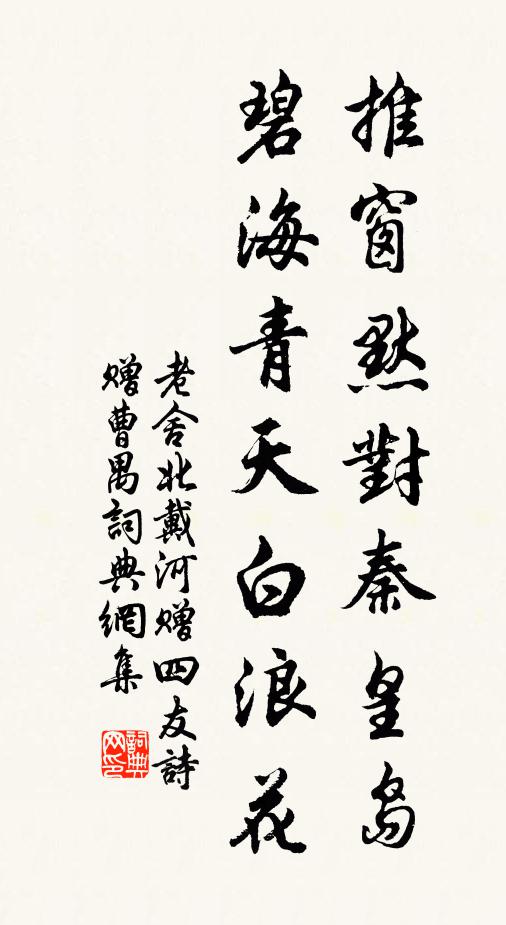 推窗默對秦皇島
碧海青天白浪花
老舍北戴河贈四友詩
贈曹禺詞典網集
詞典网印